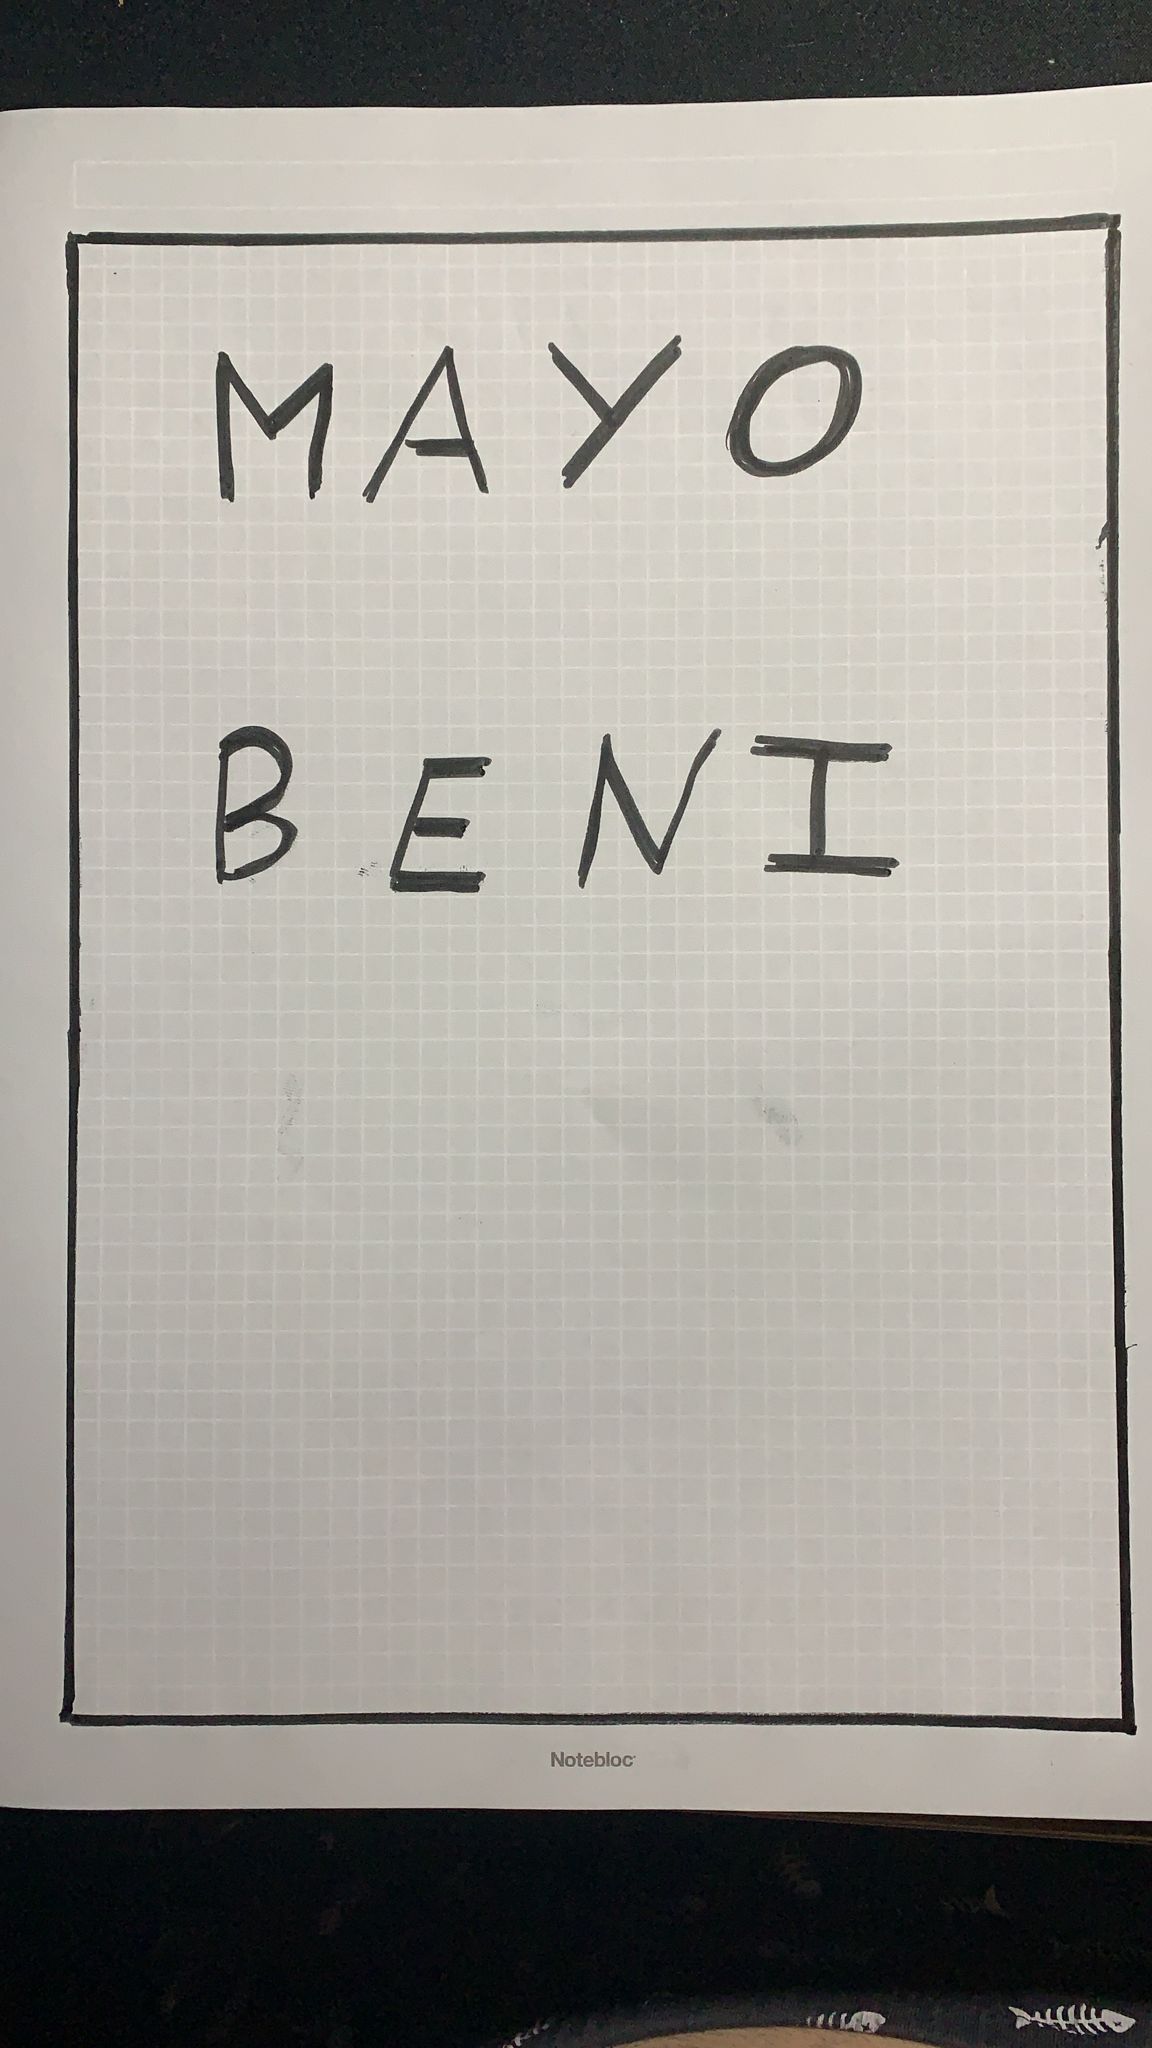 MAYO
BENI
Notebloc